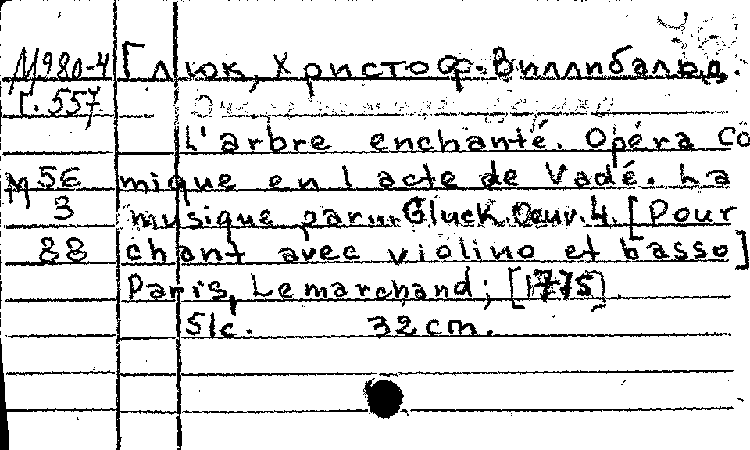 М980-4 Глюк, Христоф-Виллибальд.
Г. 557
L'arbre enchanté. Opéra Co
М 56 mique en 1 acte de Vadé. La
3 musique par... Gluck. Oeuv. 4. [Pour
88 chant avec violino et basso]
Paris, Lemarchand; [1775].
51с. 32 cm.